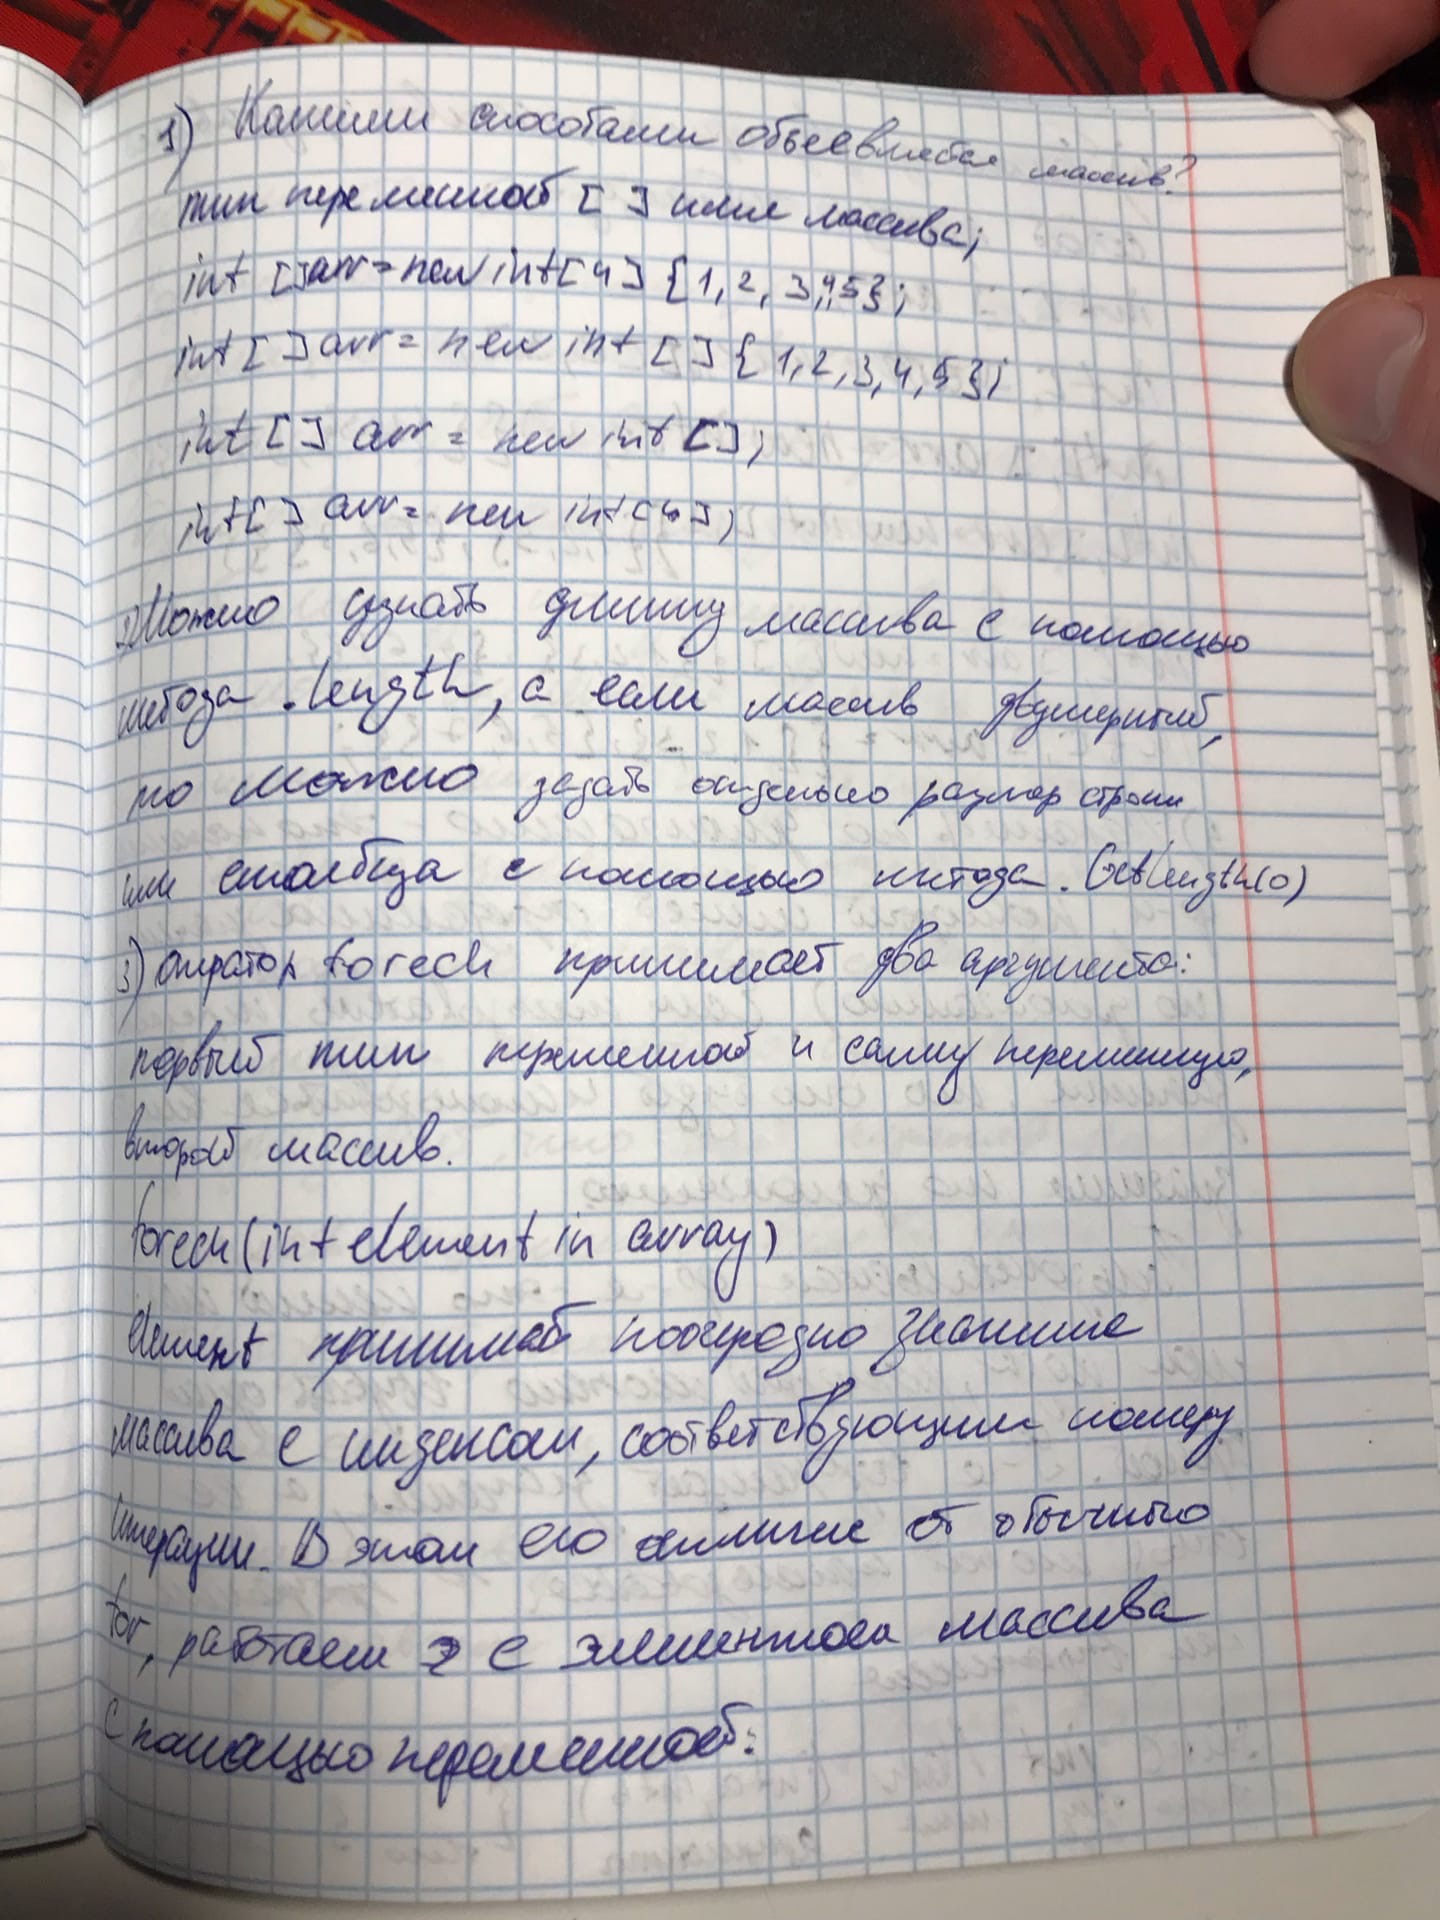 1) Какими способами объевляется массив?
тип переменной [ ] имя массива;
int []arr = new int[4] {1, 2, 3, 4, 5};
int [ ] arr = new int [ ] {1, 2, 3, 4, 5};
int [ ] arr = new int [ ];
int [ ] arr = new int [4];
2) Можно узнать длинну массива с помощью
метода .length, а если массив двумерный,
то можно задать отдельно размер строки
или столбца с помощью метода .GetLength(0)
3) оператор forech принимает два аргумента:
первый тип переменной и саму переменную,
второй массив.
forech (int element in array)
element принимает поочередно значение
массива с индексом, соответствующим номеру
итерации. В этом его отличие от обычного
for, работаем с элементом массива
с помощью переменной: